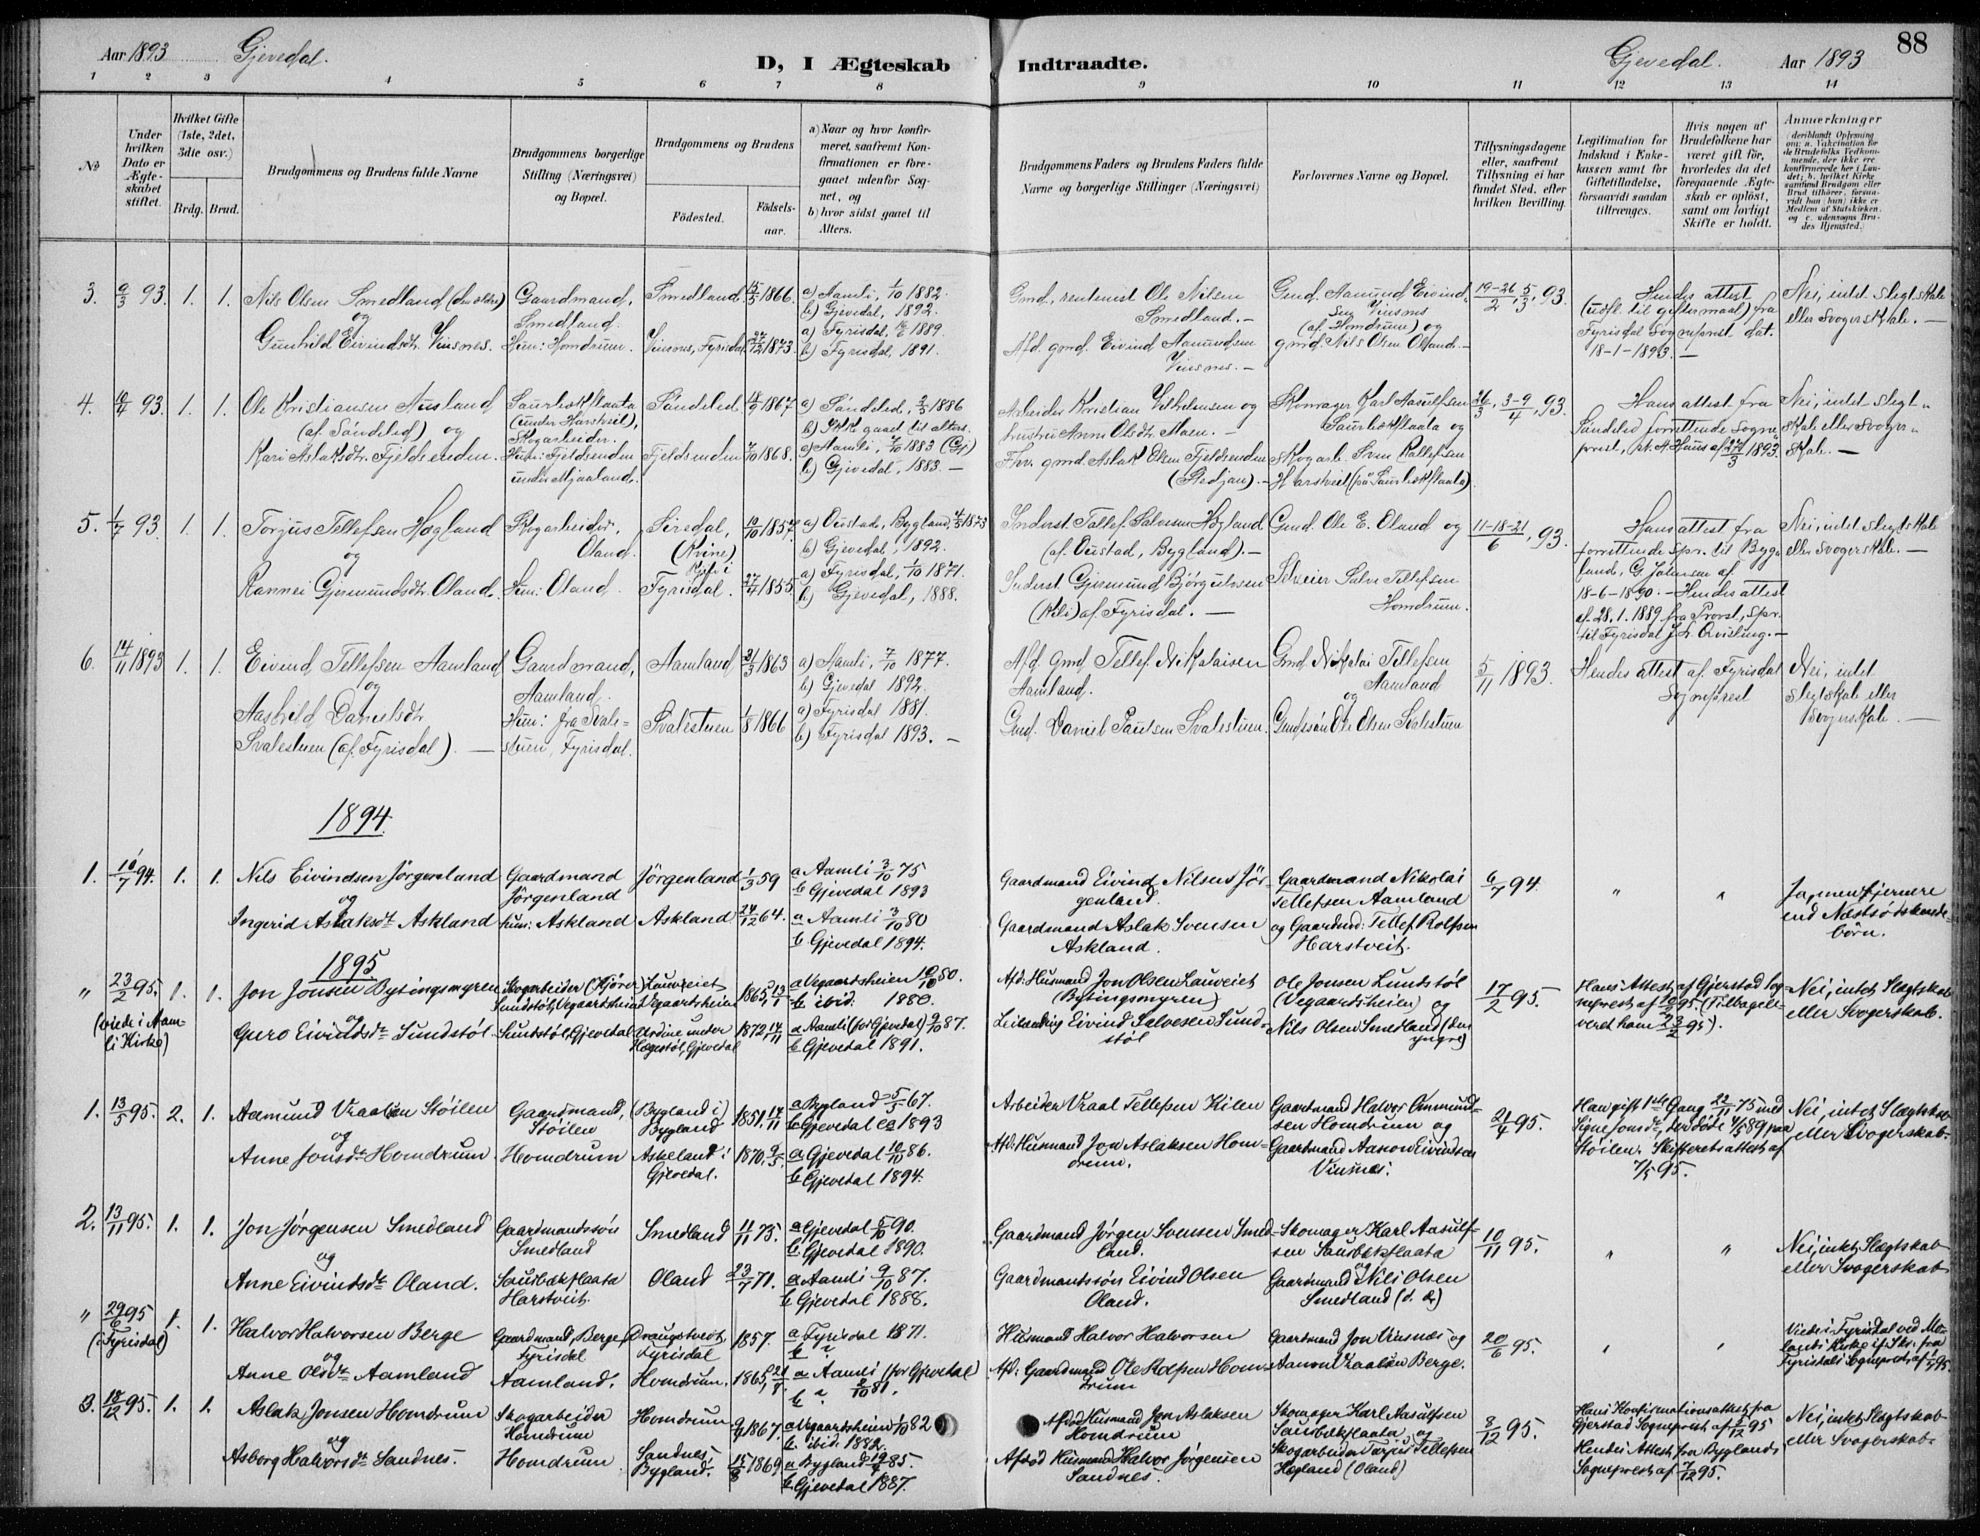 Aar 1893 Gjevedal. D, I Ægteskab Indtraadte. Gjevedal. Aar 1893 88
1 2 3 4 5 6 7 8 9 10 11 12 13 14
No
Under hvilken Dato er Ægteskabet stiftet.
Hvilket Gifte (1ste, 2det, 3die osv.)
Brdg. Brud.
Brudgommens og Brudens fulde Navne
Brudgommens borgerlige Stilling (Næringsvei) og Bopæl.
Brudgommens og Brudens
Fødested. Fødselsaar.
a) Naar og hvor konfirmeret, saafremt Konfirmationen er foregaaet udenfor Sognet, og
b) hvor sidst gaaet til Alters.
Brudgommens Faders og Brudens Faders fulde Navne og borgerlige Stillinger (Næringsvei)
Forlovernes Navne og Bopæl.
Tillysningsdagene eller, saafremt Tillysning ei har fundet Sted, efter hvilken Bevilling.
Legitimation for Indskud i Enkekassen samt for Giftetilladelse, forsaavidt saadan tiltrænges.
Hvis nogen af Brudefolkene har været gift før, hvorledes da det foregaaende Ægteskab er opløst, samt om lovligt Skifte er holdt.
Anmærkninger
3. 9/3 93. 1. 1. Nils Olsen Smedland (den ældre)
og
Gunhild Eivindsdtr. Viusnes.
Gaardmand, Smedland.
Hun: Homdrum.
Smedland 15/5 1866.
Viusnes, Fyrisdal 27/12 1873.
a) Aamli, 1/10 1882.
b) Gjevedal, 1892.
a) Fyrisdal, 1889.
b) Fyrisdal, 1891.
Gmd., rentenist Ole Nilsen Smedland. —
Afd. gmd. Eivind Aamundsen Viusnes. —
Gmd. Aamund Eivindsen Viusnes
(af Homdrum) og
gmd. Nils Olsen Oland. —
19-26/2, 5/3, 93.
Hendes attest
(udfl. til giftermaal) fra
Fyrisdal Sogneprest dat.
18-1-1893. —
Nei, intet slegtskab
eller Svogerskab. —
4. 10/4 93. 1. 1. Ole Kristiansen Ausland
(af Søndeled) og
Kari Aslaksdtr. Fjeldsenden.
Saurbækflaata
(under Harstveit),
Skogarbeider.
Hun: Fjeldsenden
under Mjaaland.
Søndeled 14/9 1867
Fjeldsenden 7/10 1868.
a) Søndeled, 1886
b) Ikke gaaet til alters.
a) Aamli, 7/10 1883 (Gj)
b) Gjevedal, 1883. —
Arbeider Kristian Vilhelmsen og
hustru Anne Olsdtr. Moen. —
Fhv. gmd Aslak Olsen Fjeldsenden
(Stedjan). —
Skomager Karl Aasulfsen
Saurbækflaata og
Skogarb. Sven Rallefsen
Harstveit (på Saurbækflaata).
26/3, 3-9/4, 93.
Hans attest fra
Søndeled forrettende Sogneprest, A. Haus af 27/3 1893.
Nei, intet slegtskab eller svogerskab. —
5. 1/7 93. 1. 1. Torjus Tellefsen Høgland
og
Rannei Gjermundsdtr. Oland.
Skogarbeider, Oland.
Hun: Oland.
Siredal, 10/10 1857.
Fyrisdal. 27/4 1855.
a) Oustad, Bygland, 1873
b) Gjevedal, 1892.
a) Fyrisdal, 1/10 1871.
b) Gjevedal, 1888.
Inderst Tallef Salvesen Høgland
(af Oustad, Bygland). —
Inderst Gjermund Bjørgulvsen
(Kili) af Fyrisdal. —
Gmd. Ole E. Oland og
Selveier Salve Tellefsen
Homdrum.
11-18-21/6, 93.
Hans attest fra
forrettende Spr. til Bygland, G Johnsen af
18-6-1890. — Hendes attest
af 28.1.1889 fra Provst, spr.
til Fyrisdal J. Qvisling. —
Nei, intet slegtskab
eller svogerskab. —
6. 14/11 1893 1. 1. Eivind Tellefsen Aamland
og
Aashild Danielsdtr
Svalestuen (af Fyrisdal). —
Gaardmand,
Aamland.
Hun: fra Svalestuen, Fyrisdal.
Aamland 31/3 1863
Svalestuen 1/8 1866
a) Aamli, 7/10 1877.
b) Gjevedal 1892.
a) Fyrisdal 1881.
b) Fyrisdal 1893. —
Afd. gmd. Tellef Nikolaisen
Aamland.
Gmd. Daniel Paulsen Svalestuen.
Gmd. Nikolai Tellefsen
Aamland
og
Gmdssøn Ole Olsen Svalestuen
5/11 1893.
Hendes attest af Fyrisdal
Sogneprest
Nei, intet
slegtskab eller
svogerskab. —
1894.
1. 10/7 94. 1. 1. Nils Eivindsen Jørgenland
og
Ingerid Aslaksdtr Askland
Gaardmand
Jörgenland
hun: Askland
Jörgenland 1/3 59
Askland 24/12 64.
a Aamli 3/10 75
b Gjevedal 1893
a Aamli 3/10 80
b Gjevedal 1894.
Gaardmand Eivind Nilsens Jørgenland.
Gaardmand Aslak Svensen
Askland.
Gaardmand Nikolai
Tellefsen Aamland
og Gaardmd: Tellef Rolfsen
Harstveit.
6/7 94
" "
Ja, men fjernere
end Næstsødskendebörn.
1895
" 23/2 95. 1. 1. Jon Jonsen Bytingsmyren
(viede i Aamli Kirke)
og
Guro Eivindsdtr Sundstøl.
Sundstøl, Vegaardsheien
Sundstøl, Gjevedal
Vegaardsheien
Hægestøl, Gjevedal 1872, 14/11
a Vegaardsheien 10/10 80.
b ibid. 1880.
a Aamli (for Gjevedal) 9/10 87.
b Gjevedal 1891.
Afd. Husmand Jon Olsen Lauveiet
(Bytingsmyren)
Eivind Selvesen Sundstøl
Ole Jonsen Lundstøl
(Vegaardsheien) og
Nils Olsen Smedland (den
yngre)
17/2 95.
Hans Attest af Gjerstad Sogneprest af 95 (Tilbageleveret ham 23/2 95).
Nei, intet Slægtskab
eller Svogerskab.
1. 13/5 95. 2. 1. Aamund Vraalsen Støilen
og
Anne Jonsdtr Homdrum.
Gaardmand,
Støilen
Homdrum
(Bygland i)
Bygland 1851, 17/11
Askeland i
Gjevedal. 1870, 9/5
a Bygland 5/5 67.
b Gjevedal ca 1893
a Gjevedal 10/10 86.
b Gjevedal 1894.
Arbeider Vraal Tellefsen Kilen
Afd. Husmand Jon Aslaksen Homdrum.
Gaardmand Halvor Ommundsen Homdrum og
Gaardmand Aamon Eivindsen
Viusnes.
21/4 95.
Han gift 1ste Gang 22/11 75 med
Signe Jonsdtr, der døde 4/5 89 paa
Støilen. Skifteretsattest af
7/5 95.
Nei, intet Slægtskab
eller Svogerskab.
2. 13/11 95. 1. 1. Jon Jørgensen Smedland
og
Anne Eivindsdtr Oland.
Gaardmandssön
Smedland
Saurbækflaata
Harstveit.
Smedland 11/11 75.
Oland 23/7 71.
a Gjevedal 5/10 90.
b Gjevedal 1890.
a Aamli 9/10 87.
b Gjevedal 1888.
Gaardmand Jørgen Svensen Smedland.
Gaardmandssön Eivind Olsen
Oland.
Skomager Karl Aasulfsen Saurbækflaata
og
Gaardmand Nils Olsen
Smedland (d. æ)
10/11 95.
" "
Nei, intet Slægtskab
eller Svogerskab
" 29/6 95 1. 1. Halvor Halvorsen Berge
(Fyrisdal)
og
Anne Olsdtr Aamland
Gaardmand, Berge,
Fyrisdal
Aamland.
Draugstveidt,
Fyrisdal 1857.
Homdrum. 1865, 21/8
a Fyrisdal 1871.
b "
a Aamli (for Gjevedal)
b " 2/10 81.
Husmand Halvor Halvorsen
Afd. Gaardmand Ole Rolfsen Homdrum
Gaardmand Jon Viusnæs og
Aamon Vraalsen Berge.
20/6 95.
" "
Viede i Fyrisdal ved Moland Kirke if. Skr. fra
Fyrisdals Sogneprest af
3. 18/12 95. 1. 1. Aslak Jonsen Homdrum
og
Asborg Halvorsdtr Sandnes.
Skogarbeider
Homdrum
Homdrum
Homdrum 9/9 1867
Sandnes,
Bygland. 15/8 1869
a Vegaardsheien 1/10 82
b ibid. 1882.
a Bygland 85.
b Gjevedal 1887.
Afdød Husmand Jon Aslaksen
Homdrum
Afdød Husmand Halvor Jørgensen
Sandnes.
Skomager Karl Aasulfsen
Saurbækflaata og
Skogarbeider Torjus Tellefsen
Høgland (Oland)
8/12 95.
Hans Konfirmationsattest fra
Gjerstad Sogneprest af 5/12 95
Hendes Attest fra Byglands
Sogneprest af 7/12 95.
Nei, intet Slægtskab
eller Svogerskab.